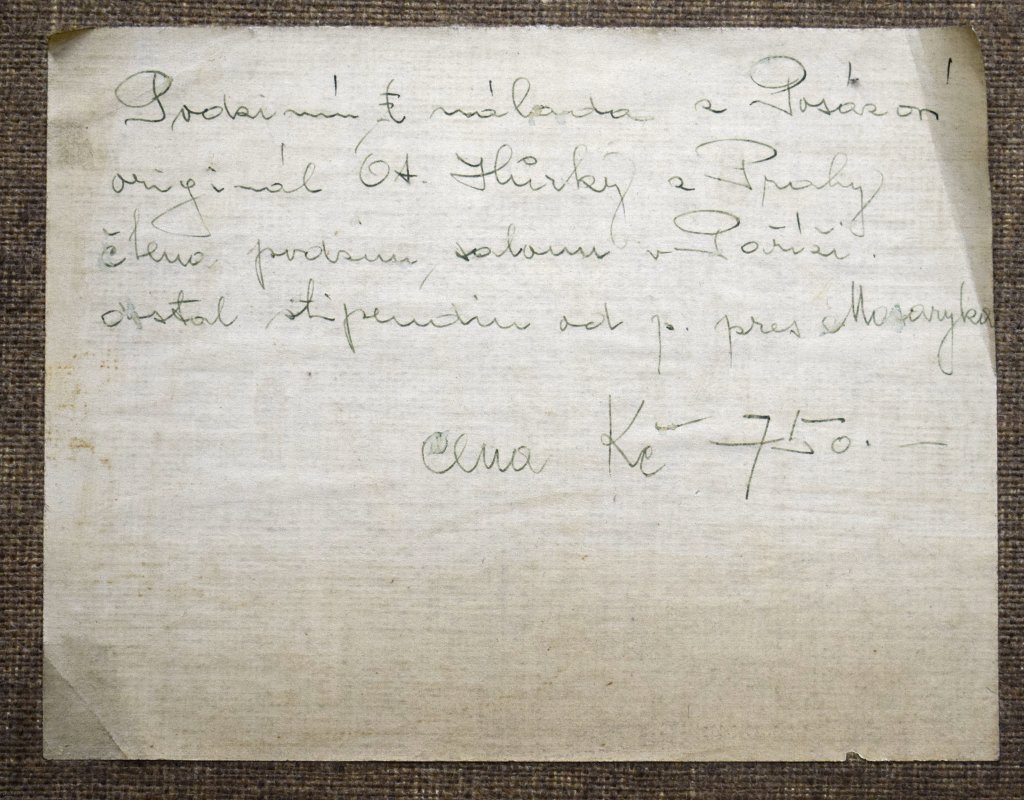 Podzimní nálada z Posázaví
originál Ot. Hůrky z Prahy
člena podzim. salonu v Paříži.
dostal stipendiu od p. pres Masaryka
cena Kč 750.—